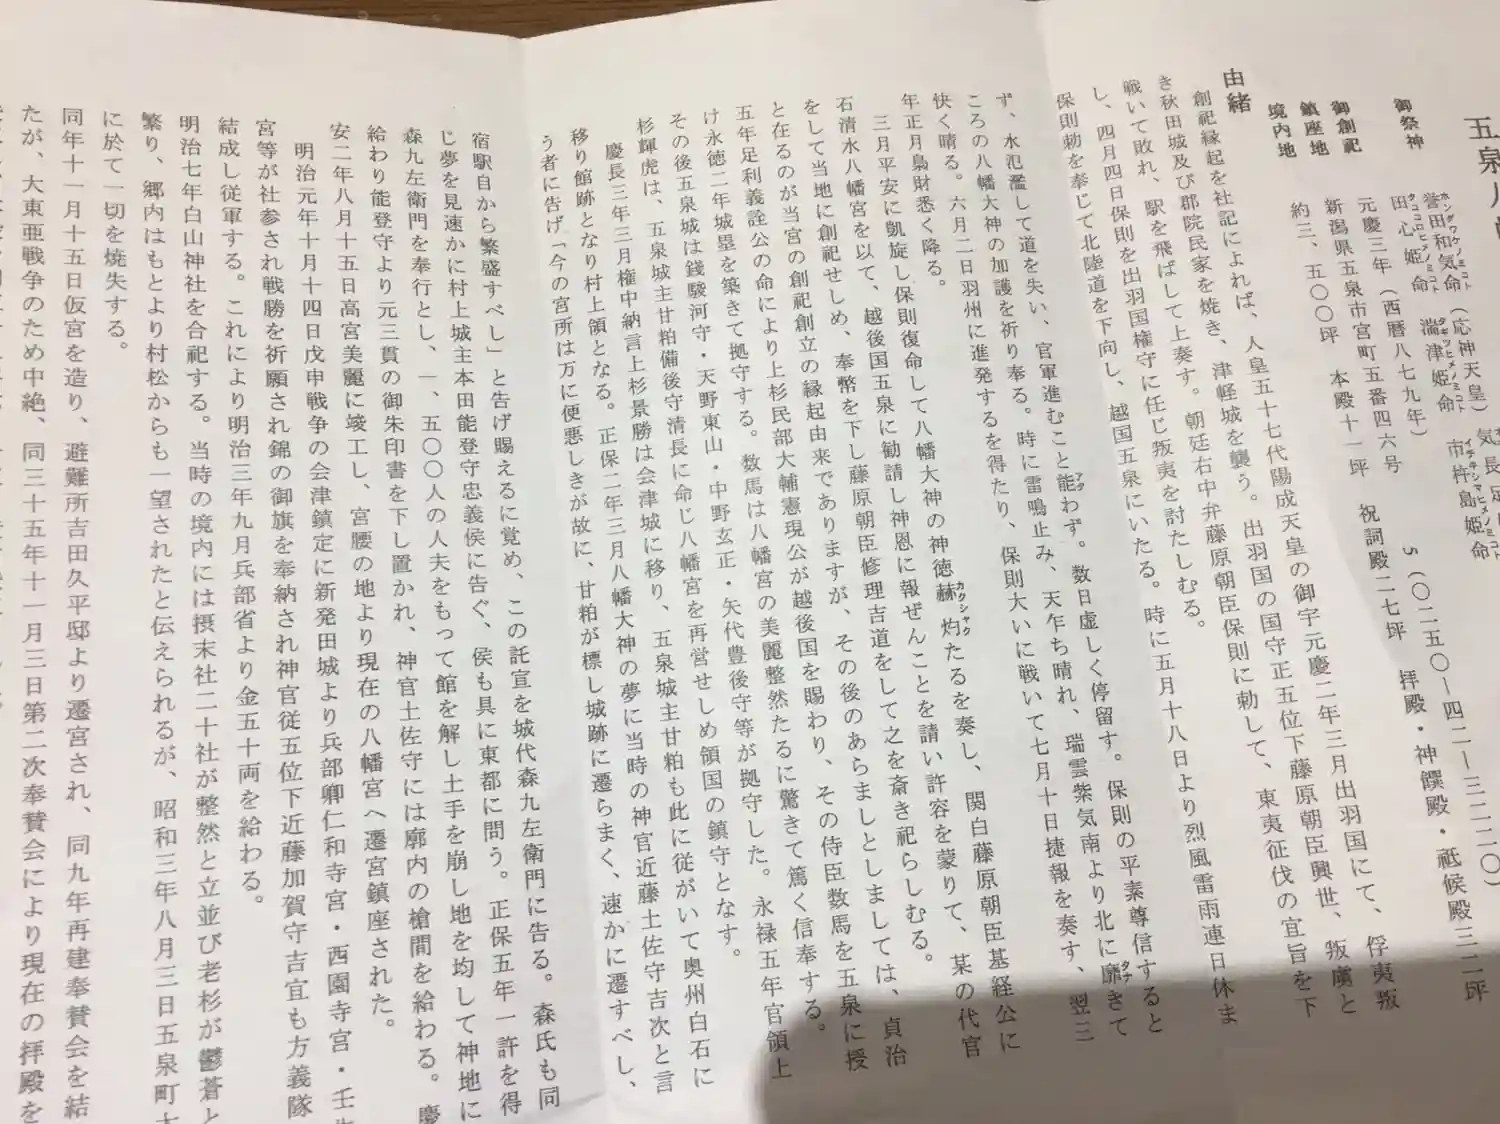 五泉八
御祭神 誉田和気命（応神天皇） 気長足
ホンダワケノミコト
田心姫命 湍津姫命 市杵島姫命
タゴコロヒメノミコト タギツヒメノミコト イチキシマヒメノミコト
御創祀 元慶三年（西暦八七九年）
鎮座地 新潟県五泉市宮町五番四六号 ☎（〇二五〇―四二―三二二〇）
境内地 約三、五〇〇坪 本殿十一坪 祝詞殿二七坪 拝殿・神饌殿・祗候殿三二坪
由緒
創祀縁起を社記によれば、人皇五十七代陽成天皇の御宇元慶二年三月出羽国にて、俘夷叛
き秋田城及び郡院民家を焼き、津軽城を襲う。出羽国の国守正五位下藤原朝臣興世、叛虜と
戦いて敗れ、駅を飛ばして上奏す。朝廷右中弁藤原朝臣保則に勅して、東夷征伐の宜旨を下
し、四月四日保則を出羽国権守に任じ叛夷を討たしむる。
保則勅を奉じて北陸道を下向し、越国五泉にいたる。時に五月十八日より烈風雷雨連日休ま
ず、水氾濫して道を失い、官軍進むこと能わず。数日虚しく停留す。保則の平素尊信すると
アタ
ころの八幡大神の加護を祈り奉る。時に雷鳴止み、天乍ち晴れ、瑞雲紫気南より北に靡きて
快く晴る。六月二日羽州に進発するを得たり、保則大いに戦いて七月十日捷報を奏す、翌三
年正月梟財悉く降る。
三月平安に凱旋し保則復命して八幡大神の神徳赫灼たるを奏し、関白藤原朝臣基経公に
カクシャク
石清水八幡宮を以て、越後国五泉に勧請し神恩に報ぜんことを請い許容を蒙りて、某の代官
をして当地に創祀せしめ、奉幣を下し藤原朝臣修理吉道をして之を斎き祀らしむる。
と在るのが当宮の創祀創立の縁起由来でありますが、その後のあらましとしましては、貞治
五年足利義詮公の命により上杉民部大輔憲現公が越後国を賜わり、その侍臣数馬を五泉に授
け永徳二年城塁を築きて拠守する。数馬は八幡宮の美麗整然たるに驚きて篤く信奉する。
その後五泉城は銭駿河守・天野東山・中野玄正・矢代豊後守等が拠守した。永禄五年官領上
杉輝虎は、五泉城主甘粕備後守清長に命じ八幡宮を再営せしめ領国の鎮守となす。
慶長三年三月権中納言上杉景勝は会津城に移り、五泉城主甘粕も此に従がいて奥州白石に
移り館跡となり村上領となる。正保二年三月八幡大神の夢に当時の神官近藤土佐守吉次と言
う者に告げ「今の宮所は万に便悪しきが故に、甘粕が標し城跡に遷らまく、速かに遷すべし、
宿駅自から繁盛すべし」と告げ賜えるに覚め、この託宣を城代森九左衛門に告る。森氏も同
じ夢を見速かに村上城主本田能登守忠義侯に告ぐ、侯も具に東都に問う。正保五年一許を得
森九左衛門を奉行とし、一、五〇〇人の人夫をもって館を解し土手を崩し地を均して神地に
給わり能登守より元三貫の御朱印書を下し置かれ、神官土佐守には廓内の槍間を給わる。慶
安二年八月十五日高宮美麗に竣工し、宮腰の地より現在の八幡宮へ遷宮鎮座された。
明治元年十月十四日戊申戦争の会津鎮定に新発田城より兵部卿仁和寺宮・西園寺宮・壬生
宮等が社参され戦勝を祈願され錦の御旗を奉納され神官従五位下近藤加賀守吉宜も方義隊
結成し従軍する。これにより明治三年九月兵部省より金五十両を給わる。
明治七年白山神社を合祀する。当時の境内には摂末社二十社が整然と立並び老杉が鬱蒼と
繁り、郷内はもとより村松からも一望されたと伝えられるが、昭和三年八月三日五泉町大
に於て一切を焼失する。
同年十一月十五日仮宮を造り、避難所吉田久平邸より遷宮され、同九年再建奉賛会を結
たが、大東亜戦争のため中絶、同三十五年十一月三日第二次奉賛会により現在の拝殿を